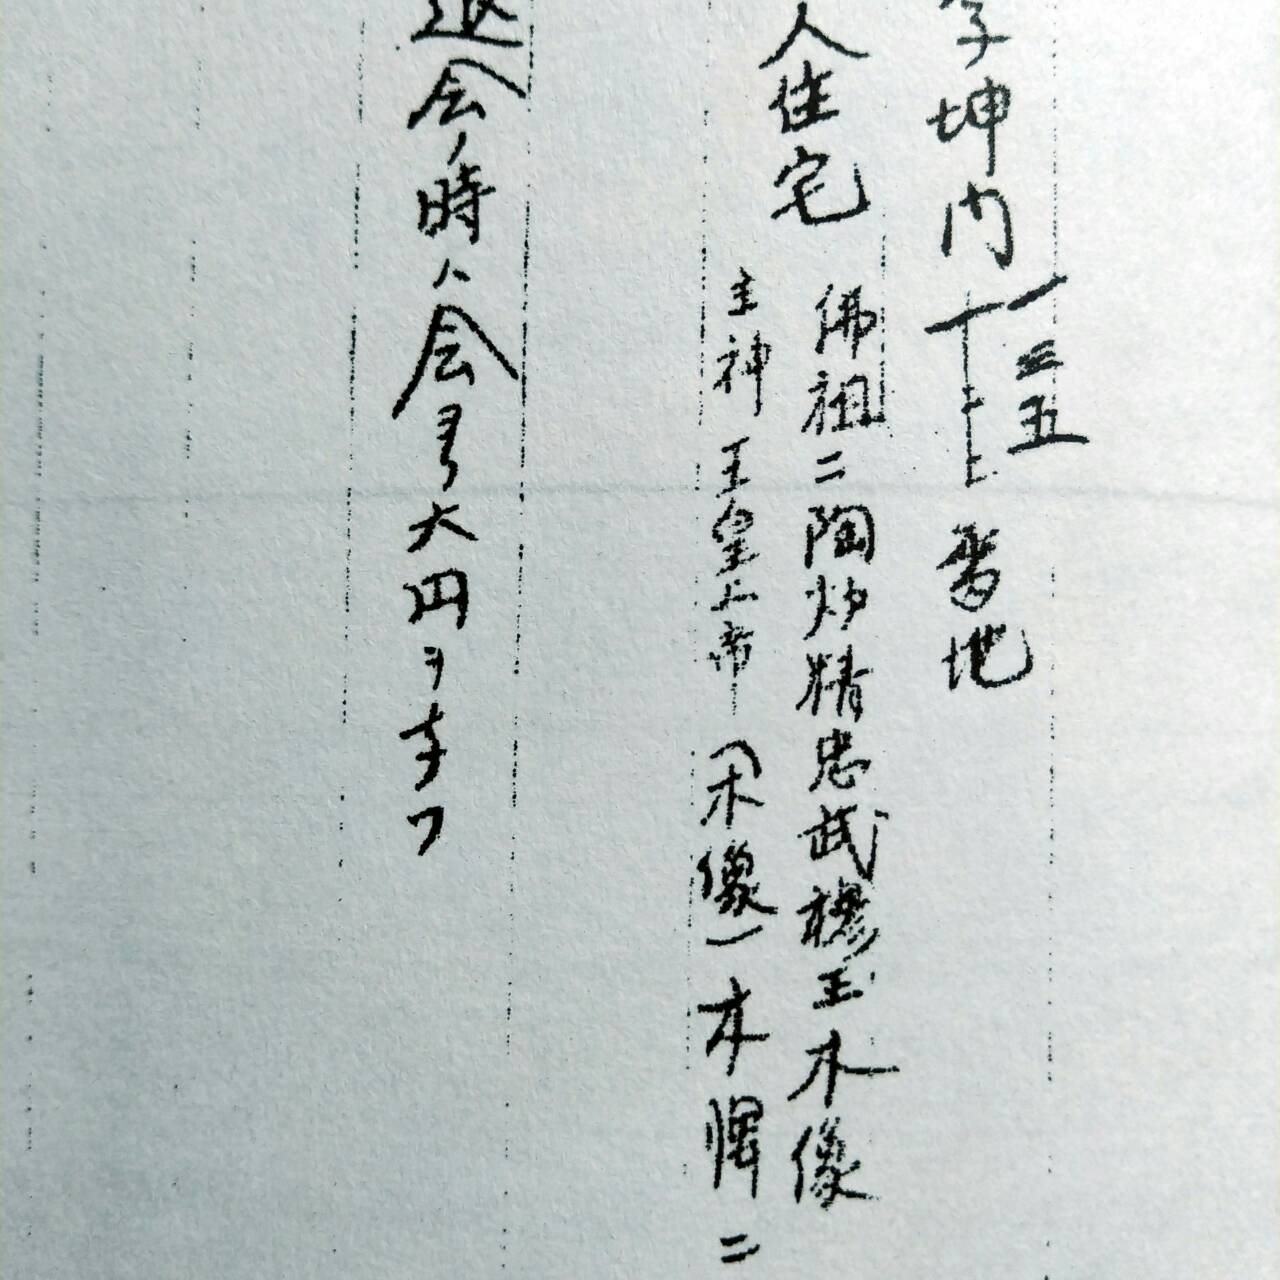 字坤内一三五番地
人住宅
佛祖ニ陶炉精忠武穆王木像
主神 玉皇上帝(木像)木牌ニ
退会ノ時ハ会ヨリ大円ヲ